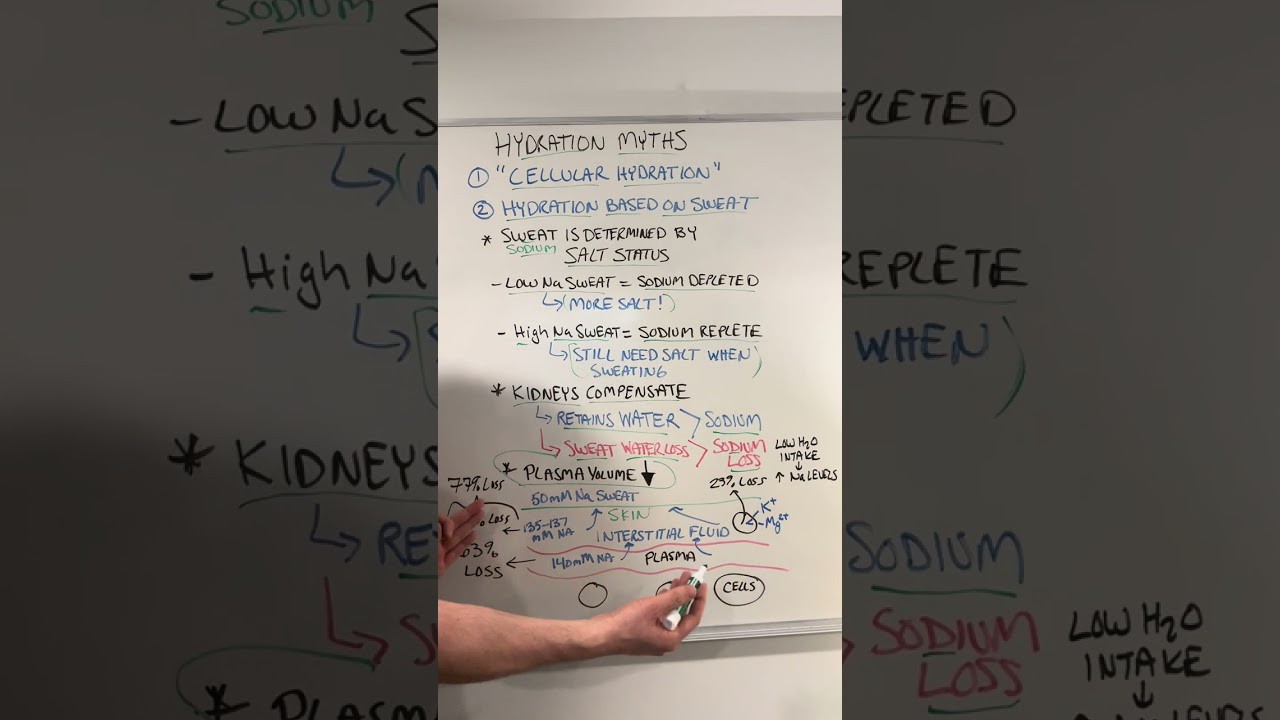 HYDRATION MYTHS
① "CELLULAR HYDRATION"
② HYDRATION BASED ON SWEAT
* SWEAT IS DETERMINED BY
SODIUM
SALT STATUS
- LOW Na SWEAT = SODIUM DEPLETED
(MORE SALT!)
- High Na SWEAT = SODIUM REPLETE
(STILL NEED SALT WHEN
SWEATING)
* KIDNEYS COMPENSATE
RETAINS WATER > SODIUM
SWEAT WATER LOSS > SODIUM
LOSS
LOW H2O
INTAKE
↓
↑ Na LEVELS
* PLASMA VOLUME ↓
77% LOSS
23% LOSS
50mM Na SWEAT
SKIN
K+
Mg2+
LOSS
135-137
mM NA
INTERSTITIAL FLUID
LOSS
140mM NA
PLASMA
CELLS